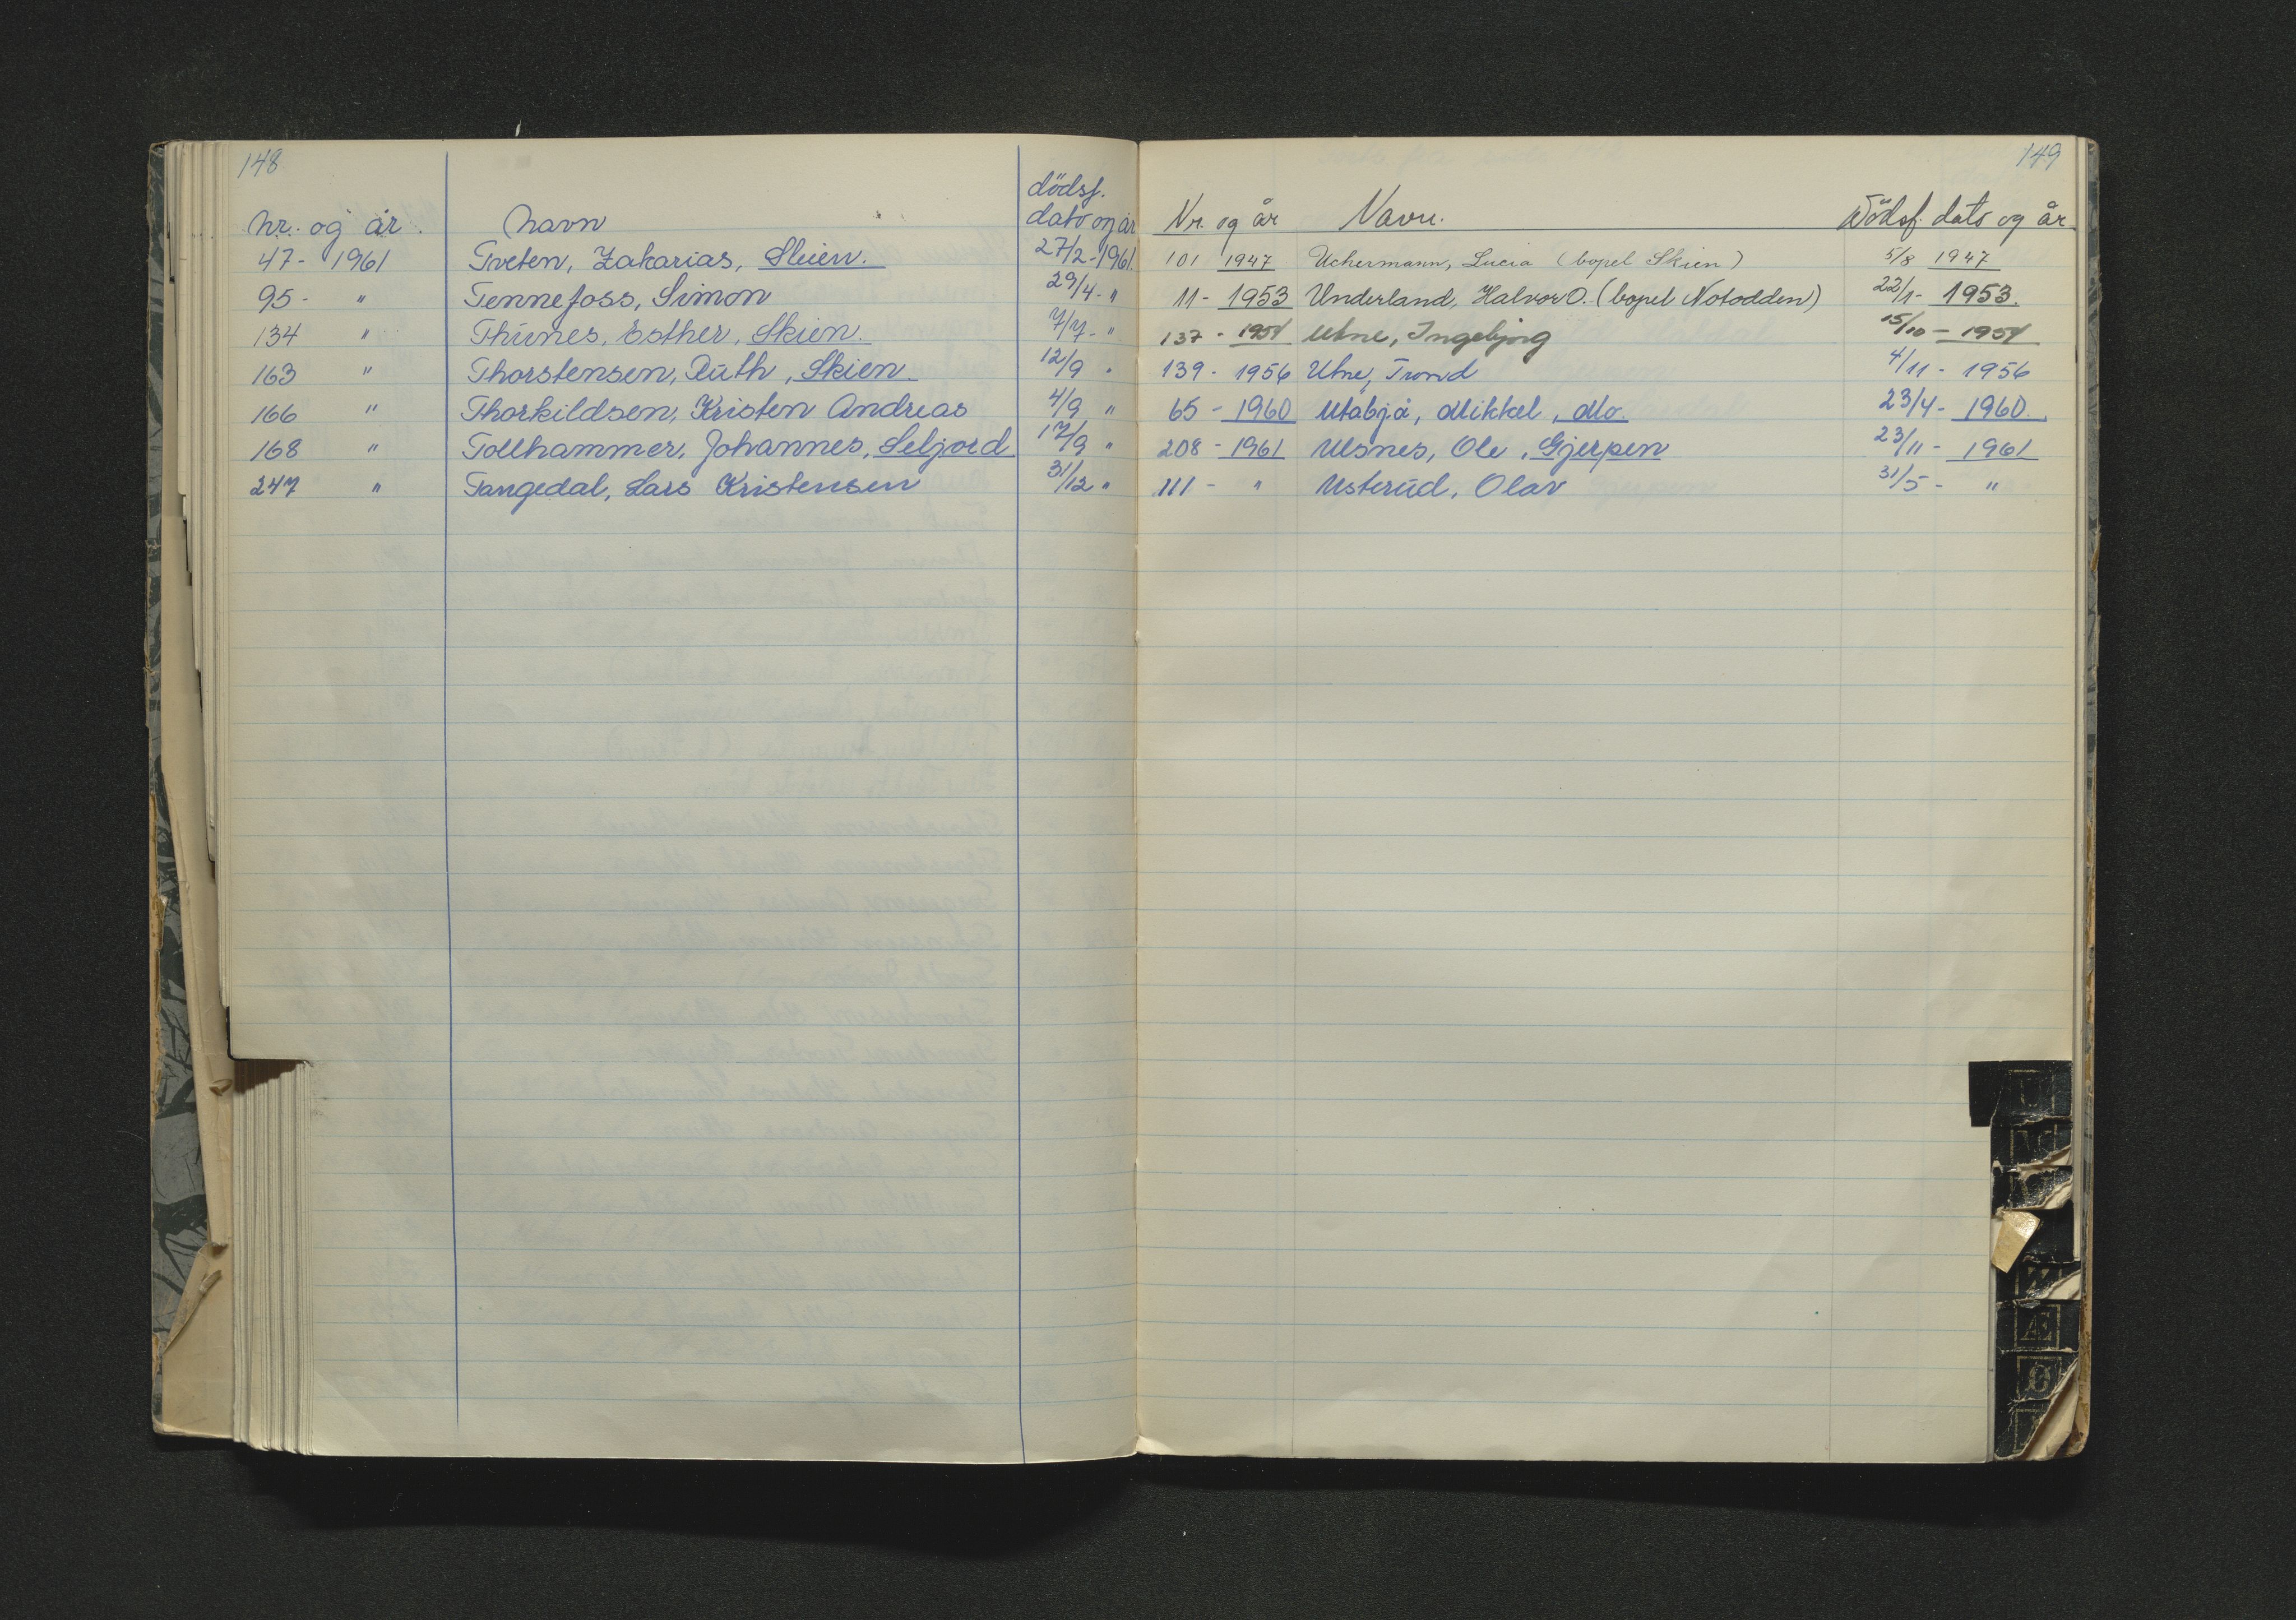 148
dödsf.
Nr. og år. Navn dato og år
47- 1961 Tveten, Zakarias, Skien. 27/2-1961
95- " Tennefoss, Simon 29/4- "
134 " Thunes, Esther, Skien. 7/7- "
163 " Thorstensen, Ruth, Skien. 12/9 "
166 " Thorkildsen, Kristen Andreas 4/9 "
168 " Tollhammer, Johannes, Seljord 17/9 "
247 " Tangedal, Lars Kristensen 31/12 "
149
Nr. og år Navn. Dödsf. dato og år.
101 1947 Uchermann, Lucia (bopel Skien) 5/8 1947
11- 1953 Underland, Halvor O. (bopel Notodden) 22/1- 1953.
137 - 1954 Utne, Ingebjörg 15/10 - 1954
139 - 1956 Utne, Trond 4/11 - 1956
65 - 1960 Utåbjå, Mikkel, Mo. 23/4- 1960.
208 - 1961 Ulsnes, Ole, Gjerpen 23/11 - 1961
111 - " Usterud, Olav 31/5 - "
U
Æ
Ø